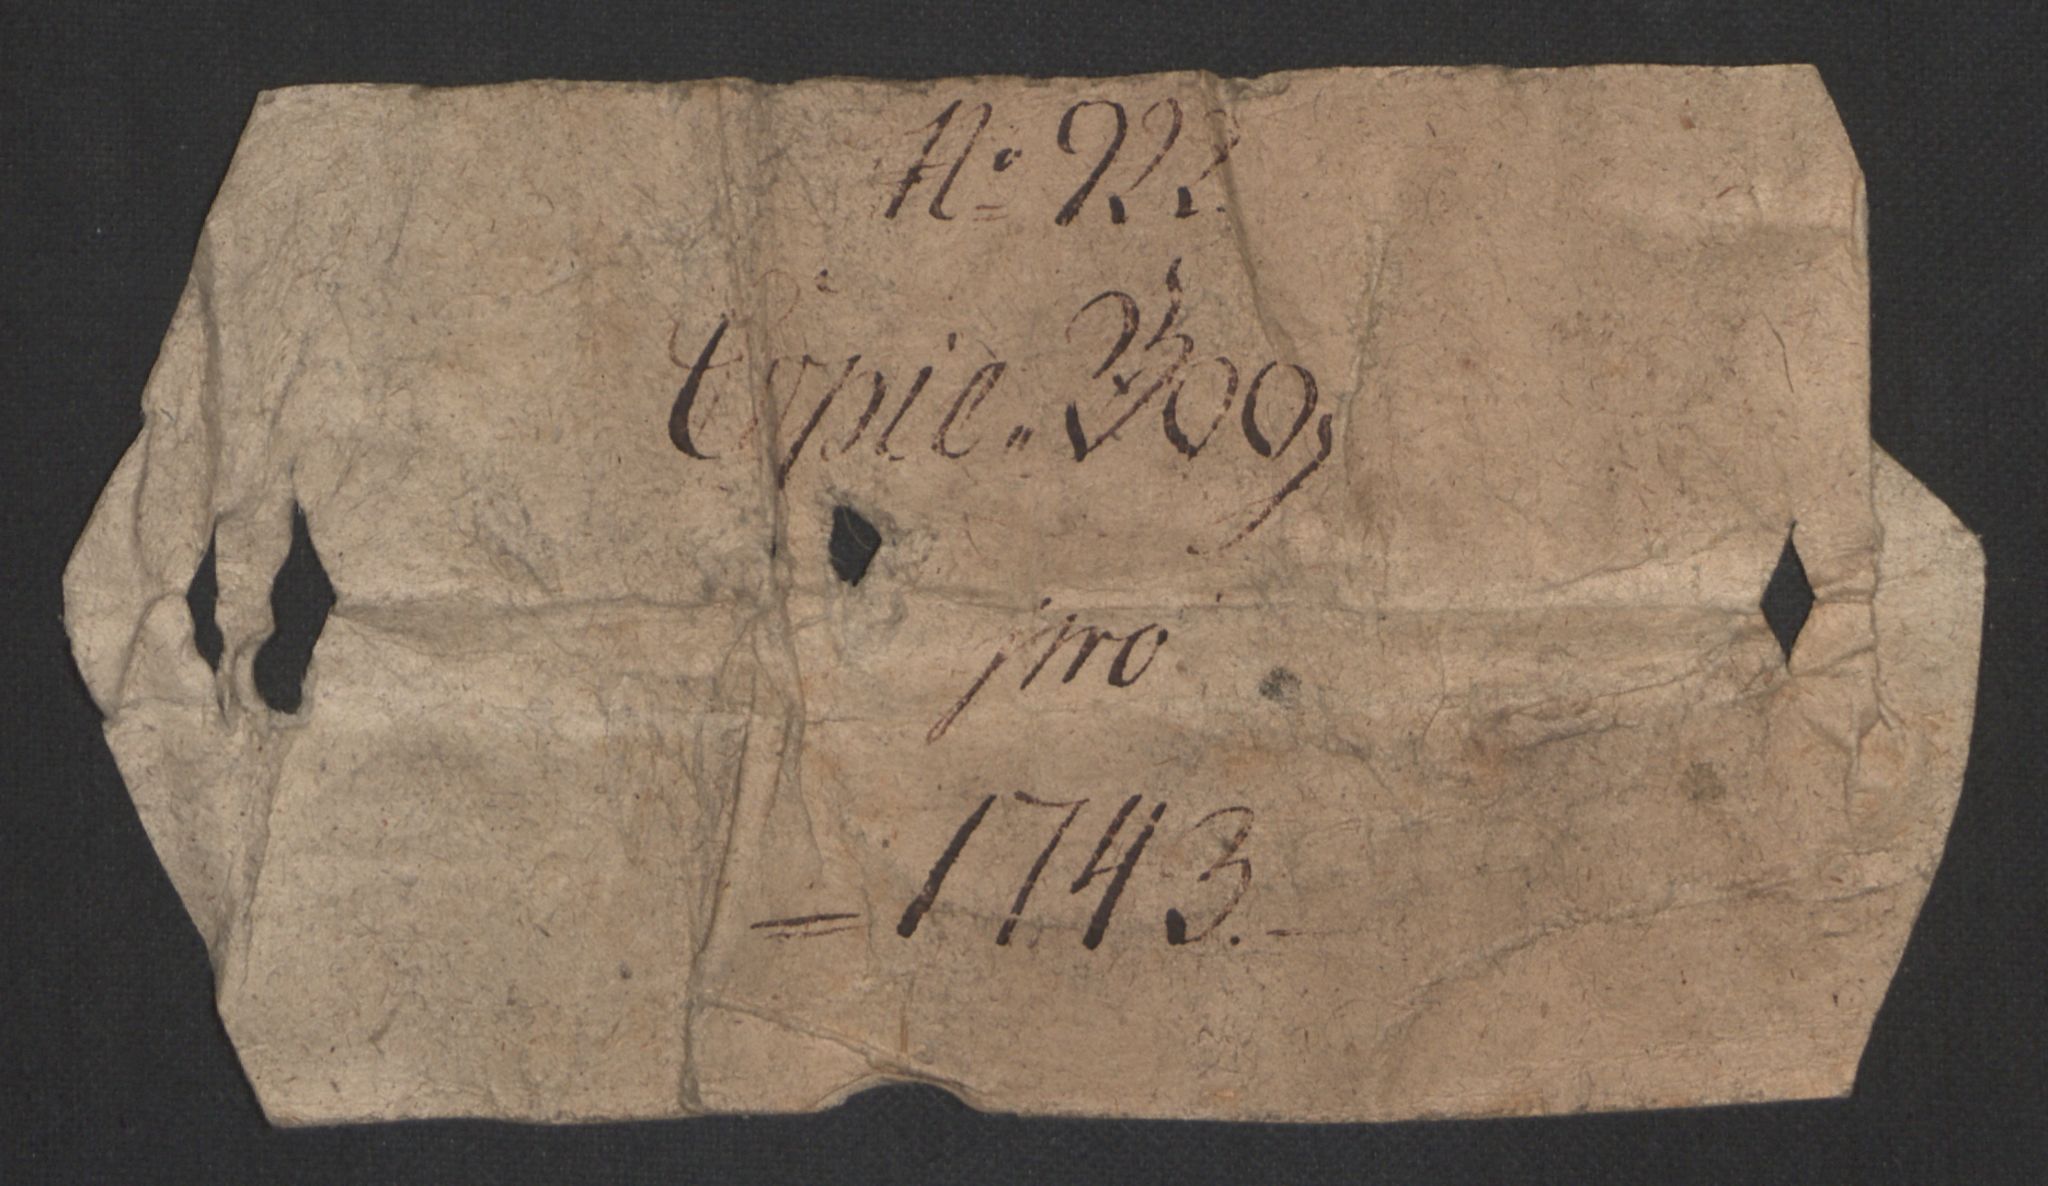 No 922.
Copie. Boog
pro
= 1743. –